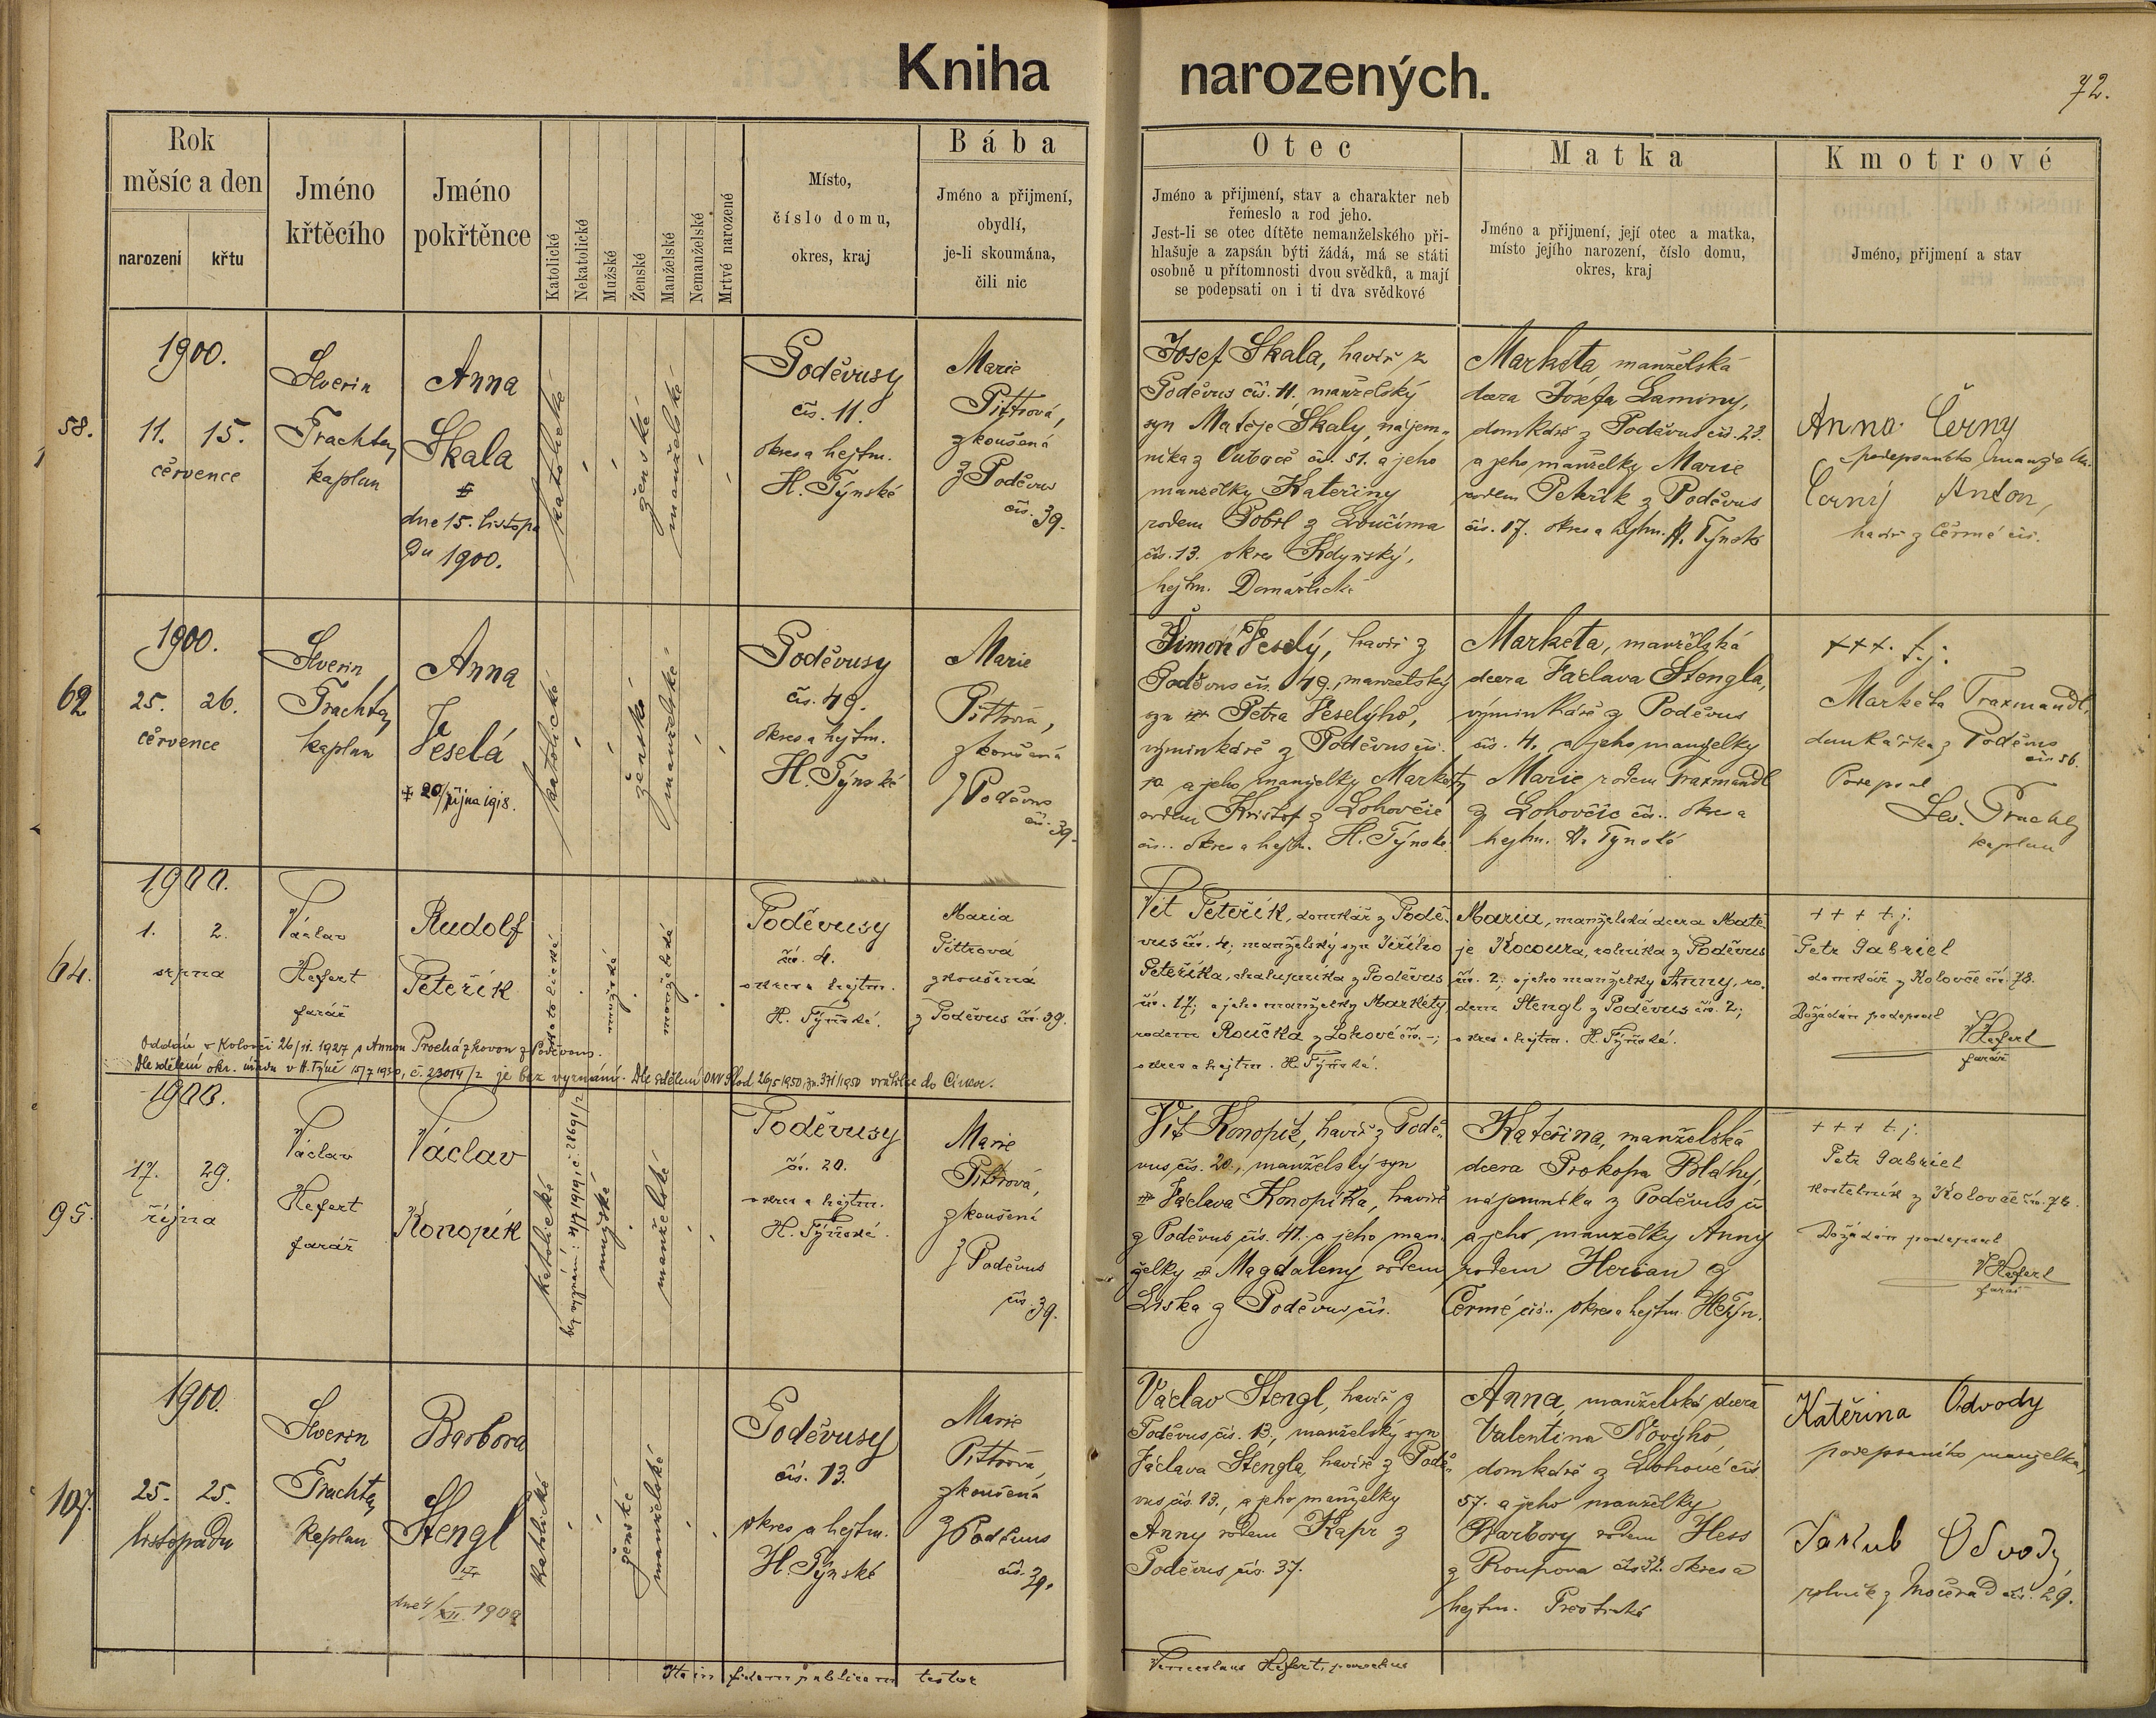 Kniha narozených.
72.
Rok
měsíc a den
narození křtu
Jméno
křtěcího
Jméno
pokřtěnce
Katolické
Nekatolické
Mužské
Ženské
Manželské
Nemanželské
Mrtvé narozené
Místo,
číslo domu,
okres, kraj
Bába
Jméno a přijmení,
obydlí,
je-li skoumána,
čili nic
Otec
Jméno a přijmení, stav a charakter neb
řemeslo a rod jeho.
Jest-li se otec dítěte nemanželského při-
hlašuje a zapsán býti žádá, má se státi
osobně u přítomnosti dvou svědků, a mají
se podepsati on i ti dva svědkové
Matka
Jméno a přijmení, její otec a matka,
místo jejího narození, číslo domu,
okres, kraj
Kmotrové
Jméno, přijmení a stav
58.
1900.
11. 15.
července
Severin
Trachta
kaplan
Anna
Skala
dne 15. listopa
du 1900.
katolické
ženské
manželské
Poděvusy
čís. 11.
okres a hejtm.
H. Týnské
Marie
Pittrová,
zkoušená
z Poděvus
čís. 39.
Josef Skala, havíř z
Poděvus čís. 11. manželský
syn Matěje Skaly, nájem-
níka z čís. 51. a jeho
manželky Kateřiny
rodem z Loučíma
čís. 13. okres Kdyňský,
hejtm. Domažlické
Marketa, manželská
dcera Josefa Laminy,
domkáře z Poděvus čís. 23.
a jeho manželky Marie
rodem Peteřík z Poděvus
čís. 17. okres a hejtm. H. Týnské
Anna Černy
podepsaného manželka
Černý Anton,
havíř z Čermé čís.
62
1900.
25. 26.
července
Severin
Trachta
kaplan
Anna
Veselá
20/října 1918.
katolické
ženské
manželské
Poděvusy
čís. 49.
okres a hejtm.
H. Týnské
Marie
Pittrová,
zkoušená
z Poděvus
čís. 39.
Šimon Veselý, havíř z
Poděvus čís. 49., manželský
syn Petra Veselýho,
výminkáře z Poděvus čís.
a jeho manželky Markety
rodem Kristof z Lohovčic
čís.. okres a hejtm. H. Týnské.
Marketa, manželská
dcera Václava Stengla,
výminkáře z Poděvus
čís. 4. a jeho manželky
Marie rodem Traxmandl
z Lohovčic čís.. okres a
hejtm. H. Týnské
+++. tj:
Marketa Traxmandl,
domkářka z Poděvus
čís 56.
Podepsal
Sev. Trachta
kaplan
64.
1900.
1. 2.
srpna
Václav
Hefert
farář
Rudolf
Peteřík
katolické
mužské
manželské
Poděvusy
čís. 4.
okres a hejtm.
H. Týnské.
Maria
Pittrová
zkoušená
z Poděvus čís. 39.
Oddán v Kolovči 26/11. 1927 s Annou Procházkovou z Poděvous.
Dle sdělení okr. úřadu v H. Týně 15/7 1930, č. 23014/2 je bez vyznání. Dle sdělení ONV Stod 26/5 1950, zn. 371/1950 vrátil se do Církve.
Vít Peteřík, domkář z Podě-
vus čís. 4, manželský syn Jiřího
Peteříka, chalupníka z Poděvus
čís. 17; a jeho manželky Markéty,
rodem Roučka z Lohové čís. -;
okres a hejtm. H. Týnské.
Maria, manželská dcera Matě-
je Kocoura, rolníka z Poděvus
čís. 2; a jeho manželky Anny, ro-
dem Stengl z Poděvus čís. 2;
okres a hejtm. H. Týnské.
+++ t. j.
Petr Gabriel
domkář z Kolovče čís. 78.
Dožádán podepsal
VHefert
farář
95.
1900.
17. 29.
října
Václav
Hefert
farář
Václav
Konopík
katolické
bez vyznání: 1919, č. 28691/2
mužské
manželské
Poděvusy
čís. 20.
okres a hejtm.
H. Týnské.
Marie
Pittrová,
zkoušená
z Poděvus
čís. 39.
Vít Konopík, havíř z Podě-
vus čís. 20., manželský syn
Václava Konopíka, havíře
z Poděvus čís. 41. a jeho man-
želky Magdaleny rodem
Liska z Poděvus čís.
Kateřina, manželská
dcera Prokopa Bláhy,
nájemníka z Poděvus čís
a jeho manželky Anny
rodem Herian z
Čermé čís.. okres a hejtm. H. Týn.
+++ t. j.
Petr Gabriel
kostelník z Kolovče čís. 78.
Dožádán podepsal
VHefert
farář
107.
1900.
25. 25.
listopadu
Severin
Trachta
kaplan
Barbora
Stengl
dne 4/XII. 1900
katolické
ženské
manželské
Poděvusy
čís. 13.
okres a hejtm.
H. Týnské
Marie
Pittrová
zkoušená
z Poděvus
čís. 39.
Václav Stengl, havíř z
Poděvus čís. 13., manželský syn
Václava Stengla, havíře z Podě-
vus čís. 13., a jeho manželky
Anny rodem Kapr z
Poděvus čís. 37.
Anna, manželská dcera
Valentina Novýho
domkáře z Lohové čís
57. a jeho manželky
Barbory rodem Hess
z Roupova čís 32. okres a
hejtm. Přeštické
Katěřina Odvody
podepsaného manželka,
Jakub Odvody,
rolník z Močerad čís. 29.
Ita in fidem publicam testor
Venceslaus Hefert, parochus